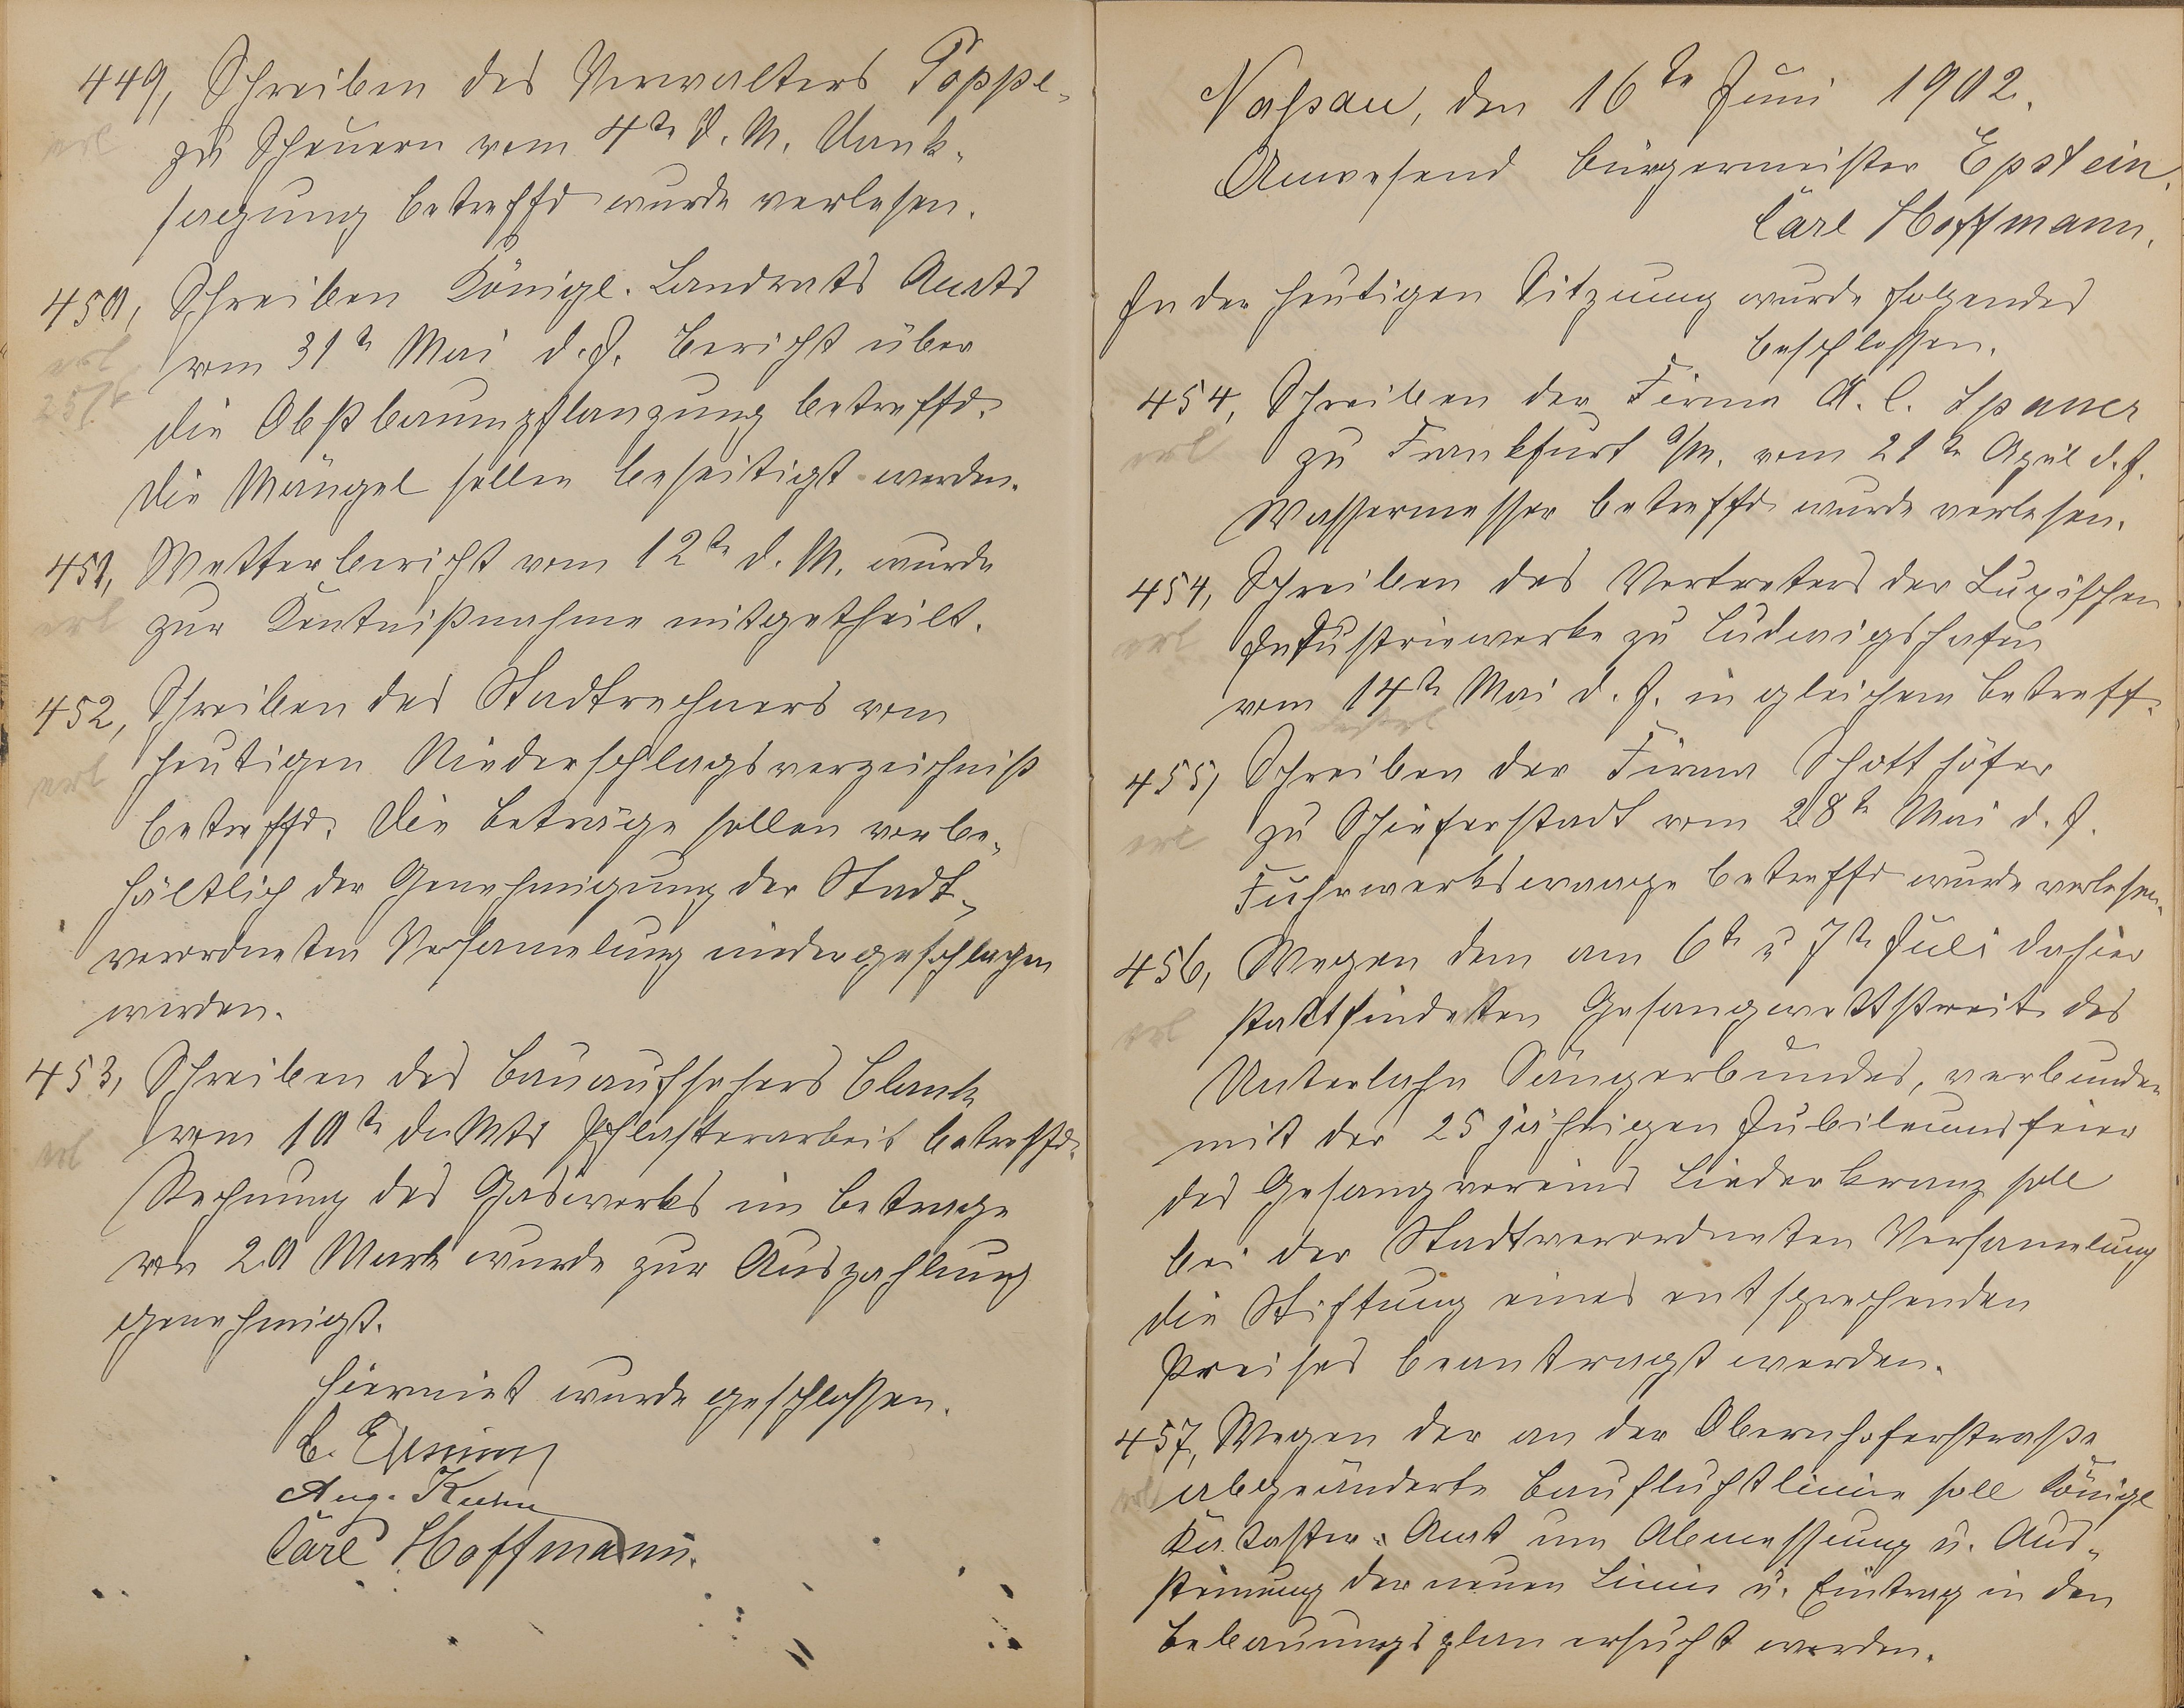 449, Schreiben des Verwalters Poppe-
erl zu Scheuern vom 4tn d. M. Dank-
sagung betreffd wurde verlesen.
450, Schreiben Königl. Landrats Amts
vom 31tn Mai d. J. Bericht über
25/6
die Obstbaumpflanzung betreffd.
die Mängel sollen beseitigt werden.
451, Wetterbericht vom 12tn d. M. wurde
erl zur Kentnißnahme mitgetheilt.
452, Schreiben des Stadtrechners vom
erl heutigen Niederschlagsverzeichniß
betreffd. Die Beträge sollen vorbe-
hältlich der Genehmigung der Stadt-
verordneten Versamelung niedergeschlagen
werden.
453, Schreiben des Bauaufsehers Blank
erl vom 10tn d. Mts Pflasterarbeit betreffd.
Rechnung des Gaswerks im Betrage
von 20 Mark wurde zur Auszahlung
genehmigt.
Hiermit wurde geschlossen.
Aug. Kuhn
Carl Hoffmann.
Naßau, den 16tn Juni 1902.
Anwesend Bürgermeister Epstein,
Carl Hoffmann.
In der heutigen Sitzung wurde folgendes
beschlossen.
454, Schreiben der Firma A. C. Spanner
erl zu Frankfurt a/M. vom 21tn April d. J.
Wassermesser betreffd wurde verlesen.
454, Schreiben des Vertreters der Luxischen
erl Industriewerke zu Ludwigshafen
vom 14tn Mai d. J. in gleichem Betreff.
455, Schreiben der Firma Schotthöfer
erl zu Schifferstadt vom 28tn Mai d. J.
Fuhrwerkswaage betreffd wurde verlesen.
456, Wegen dem am 6tn u 7tn Juli dahier
erl stattfindeten Gesangwettstreit des
Unterlahn Sängerbundes, verbunden
mit der 25 jährigen Jubileumsfeier
des Gesangvereins Liederkranz soll
bei der Stadtverordneten Versamelung
die Stiftung eines entsprechenden
Preises beantragt werden.
457, Wegen der an der Obernhoferstraße
erl abgeänderte Baufluchtlinie soll Königl
Kataster-Amt um Abmessung u. Aus-
steinung der neuen Linie u. Eintrag in den
Bebauungsplan ersucht werden.